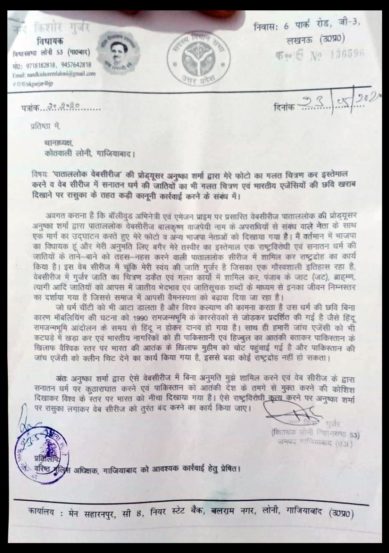 नंद किशोर गुर्जर
विधायक
विधानसभा लोनी 53
मो0: 9718182818, 9457642818
निवास: 6 पार्क रोड, जी-3,
लखनऊ (उ0प्र0)
No 136596
पत्रांक:
दिनांक 23/05/2020
प्रतिष्ठा में,
थानाध्यक्ष,
कोतवाली लोनी, गाजियाबाद।
विषय: 'पाताललोक वेबसीरीज' की प्रोड्यूसर अनुष्का शर्मा द्वारा मेरे फोटो का गलत चित्रण कर इस्तेमाल
करने व वेब सीरीज में सनातन धर्म की जातियों का भी गलत चित्रण एवं भारतीय एजेंसियों की छवि खराब
दिखाने पर रासुका के तहत कड़ी कानूनी कार्रवाई करने के संबध में।
अवगत कराना है कि बॉलीवुड अभिनेत्री एवं एमेजन प्राइम पर प्रसारित वेबसीरीज पाताललोक की प्रोड्यूसर
अनुष्का शर्मा द्वारा वेबसीरीज में बालकृष्ण वाजपेयी नाम के अपराधियों से संबध वाले नेता के साथ
एक मार्ग का उद्घाटन करते हुए मेरे फोटो व अन्य भाजपा नेताओं को दिखाया गया है। मैं वर्तमान में भाजपा
का विधायक हूं और मेरी अनुमति लिए बगैर मेरे तस्वीर का इस्तेमाल एक राष्ट्रविरोधी एवं सनातन धर्म की
जातियों के ताने-बाने को तहस-नहस करने वाली पाताललोक सीरीज में शामिल कर राष्ट्रद्रोह का कार्य
किया है। इस वेब सीरीज में चूंकि मेरी स्वयं की जाति गुर्जर है जिसका एक गौरवशाली इतिहास रहा है,
वेबसीरीज में गुर्जर जाति का चित्रण डकैत एवं गलत कार्यो में शामिल कर, पंजाब के जाट (जट), ब्राहमण,
त्यागी आदि जातियों को आपस में जातीय भेदभाव एवं जातिसूचक शब्दों के माध्यम से इनका जीवन निम्नस्तर
का दर्शाया गया है जिससे समाज में आपसी वैमनस्यता को बढ़ावा दिया जा रहा है।
जो धर्म चींटी को भी आटा डालता है और विश्व कल्याण की कामना करता है उस धर्म की छवि बिना
कारण मॉबलिंचिंग की घटना को 1990 रामजन्मभूमि के कारसेवकों से जोडकर प्रदर्शित की गई है जैसे हिंदू
रामजन्मभूमि आंदोलन के समय से हिंदू न होकर दानव हो गया है। साथ ही हमारी जांच एजेंसी को भी
कटघरे में खड़ा कर एवं भारतीय नागरिकों को ही पाकिस्तानी एवं हिज्बुल का आतंकी बताकर पाकिस्तान के
खिलाफ वैश्विक स्तर पर भारत की आतंक के खिलाफ मुहीम को चोट पहुंचाई गई है और पाकिस्तान की
जांच एजेंसी को क्लीन चिट देने का कार्य किया गया है, इससे बड़ा कोई राष्ट्रद्रोह नहीं हो सकता।
अतः अनुष्का शर्मा द्वारा ऐसे वेबसीरीज में बिना अनुमति मुझे शामिल करने एवं वेब सीरीज के द्वारा
सनातन धर्म पर कुठाराघात करने एवं पाकिस्तान को आतंकी देश के तमगे से मुक्त करने की कोशिश
दिखाकर विश्व के स्तर पर भारत को नीचा दिखाया गया। ऐसे राष्ट्रविरोधी कृत्य करने पर अनुष्का शर्मा
पर रासुका लगाकर वेब सीरीज को तुरंत बंद करने का कार्य किया जाए।
प्रतिलिपि:
वरिष्ठ पुलिस अधिक्षक, गाजियाबाद को आवश्यक कार्रवाई हेतु प्रेषित।
कार्यालय : मेन सहारनपुर, सी 8, नियर स्टेट बैंक, बलराम नगर, लोनी, गाजियाबाद (उ0प्र0)